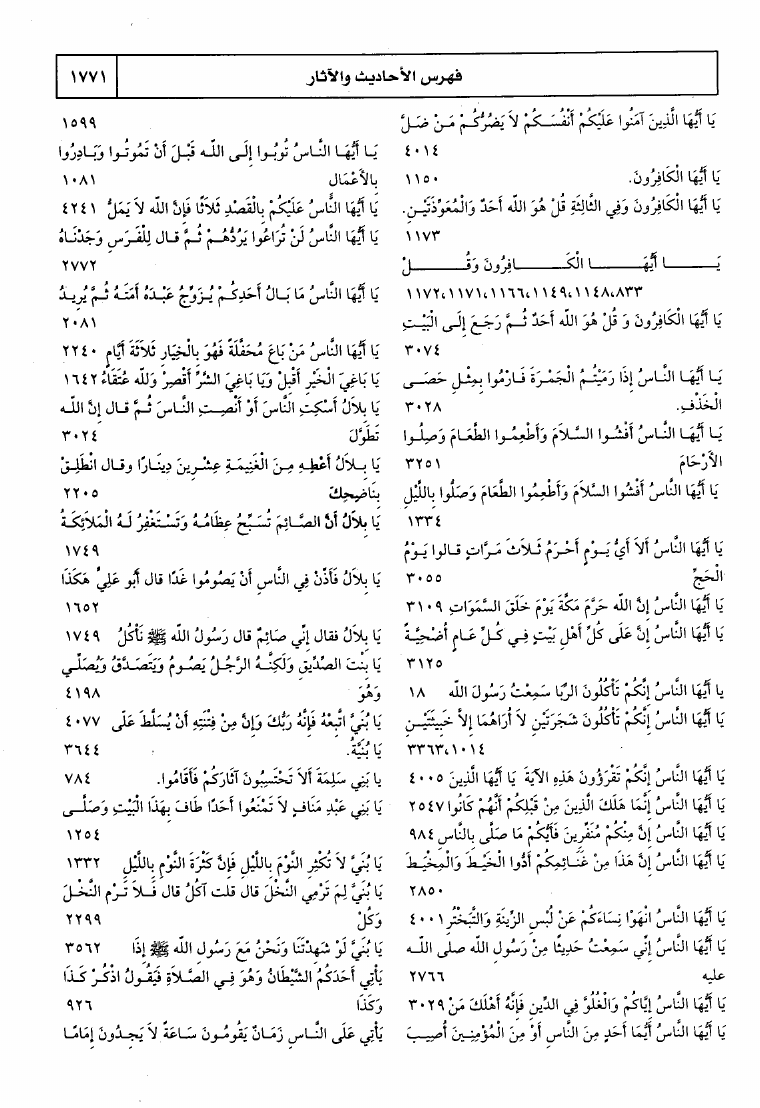 فهرس الأحاديث والآثار
١٧٧١
يَا أَيُّهَا الَّذِينَ آمَنُوا عَلَيْكُمْ أَنْفُسَكُمْ لاَ يَضُرُّكُمْ مَنْ ضَلَّ
٤٠١٤
يَا أَيُّهَا الْكَافِرُونَ. ١١٥٠
يَا أَيُّهَا الْكَافِرُونَ وَفِي الثَّالِثَةِ قُلْ هُوَ اللَّه أَحَدٌ وَالْمُعَوِّذَتَيْنِ.
١١٧٣
يَا أَيُّهَا الْكَافِرُونَ وَقُلْ
٨٣٣،١١٤٨،١١٤٩،١١٦٦،١١٧١،١١٧٢
يَا أَيُّهَا الْكَافِرُونَ وَ قُلْ هُوَ اللَّه أَحَدٌ ثُمَّ رَجَعَ إِلَى الْبَيْتِ
٣٠٧٤
يَا أَيُّهَا النَّاسُ إِذَا رَمَيْتُمُ الْجَمْرَةَ فَارْمُوا بِمِثْلِ حَصَى
الْخَذْفِ. ٣٠٢٨
يَا أَيُّهَا النَّاسُ أَفْشُوا السَّلاَمَ وَأَطْعِمُوا الطَّعَامَ وَصِلُوا
الأَرْحَامَ ٣٢٥١
يَا أَيُّهَا النَّاسُ أَفْشُوا السَّلاَمَ وَأَطْعِمُوا الطَّعَامَ وَصَلُّوا بِاللَّيْلِ
١٣٣٤
يَا أَيُّهَا النَّاسُ أَلاَ أَيُّ يَوْمٍ أَحْرَمُ ثَلاَثَ مَرَّاتٍ قالوا يَوْمُ
الْحَجِّ ٣٠٥٥
يَا أَيُّهَا النَّاسُ إِنَّ اللَّه حَرَّمَ مَكَّةَ يَوْمَ خَلَقَ السَّمَوَاتِ ٣١٠٩
يَا أَيُّهَا النَّاسُ إِنَّ عَلَى كُلِّ أَهْلِ بَيْتٍ فِي كُلِّ عَامٍ أُضْحِيَّةً
٣١٢٥
يا أَيُّهَا النَّاسُ إِنَّكُمْ تَأْكُلُونَ الرِّبَا سَمِعْتُ رَسُولَ اللَّه ١٨
يَا أَيُّهَا النَّاسُ إِنَّكُمْ تَأْكُلُونَ شَجَرَتَيْنِ لاَ أُرَاهُمَا إِلاَّ خَبِيثَتَيْنِ
١٠١٤،٣٣٦٣
يَا أَيُّهَا النَّاسُ إِنَّكُمْ تَقْرَؤُونَ هَذِهِ الآيَةَ يَا أَيُّهَا الَّذِينَ ٤٠٠٥
يَا أَيُّهَا النَّاسُ إِنَّمَا هَلَكَ الَّذِينَ مِنْ قَبْلِكُمْ أَنَّهُمْ كَانُوا ٢٥٤٧
يَا أَيُّهَا النَّاسُ إِنَّ مِنْكُمْ مُنَفِّرِينَ فَأَيُّكُمْ مَا صَلَّى بِالنَّاسِ ٩٨٤
يَا أَيُّهَا النَّاسُ إِنَّ هَذَا مِنْ غَنَائِمِكُمْ أَدُّوا الْخَيْطَ وَالْمِخْيَطَ
٢٨٥٠
يَا أَيُّهَا النَّاسُ انْهَوْا نِسَاءَكُمْ عَنْ لُبْسِ الزِّينَةِ وَالتَّبَخْتُرِ ٤٠٠١
يَا أَيُّهَا النَّاسُ إِنِّي سَمِعْتُ حَدِيثًا مِنْ رَسُولِ اللَّه صلى اللَّه
عليه ٢٧٦٦
يَا أَيُّهَا النَّاسُ إِيَّاكُمْ وَالْغُلُوَّ فِي الدِّينِ فَإِنَّهُ أَهْلَكَ مَنْ ٣٠٢٩
يَا أَيُّهَا النَّاسُ أَيُّمَا أَحَدٍ مِنَ النَّاسِ أَوْ مِنَ الْمُؤْمِنِينَ أُصِيبَ
١٥٩٩
يَا أَيُّهَا النَّاسُ تُوبُوا إِلَى اللَّه قَبْلَ أَنْ تَمُوتُوا وَبَادِرُوا
بِالأَعْمَال ١٠٨١
يَا أَيُّهَا النَّاسُ عَلَيْكُمْ بِالْقَصْدِ ثَلاَثًا فَإِنَّ اللَّه لاَ يَمَلُّ ٤٢٤١
يَا أَيُّهَا النَّاسُ لَنْ تُرَاعُوا يَرُدُّهُمْ ثُمَّ قال لِلْفَرَسِ وَجَدْنَاهُ
٢٧٧٢
يَا أَيُّهَا النَّاسُ مَا بَالُ أَحَدِكُمْ يُزَوِّجُ عَبْدَهُ أَمَتَهُ ثُمَّ يُرِيدُ
٢٠٨١
يَا أَيُّهَا النَّاسُ مَنْ بَاعَ مُحَفَّلَةً فَهُوَ بِالْخِيَارِ ثَلاَثَةَ أَيَّامٍ ٢٢٤٠
يَا بَاغِيَ الْخَيْرِ أَقْبِلْ وَيَا بَاغِيَ الشَّرِّ أَقْصِرْ وَللَّه عُتَقَاءُ ١٦٤٢
يَا بِلاَلُ أَسْكِتِ النَّاسَ أَوْ أَنْصِتِ النَّاسَ ثُمَّ قال إِنَّ اللَّه
تَطَوَّلَ ٣٠٢٤
يَا بِلاَلُ أَعْطِهِ مِنَ الْغَنِيمَةِ عِشْرِينَ دِينَارًا وقال انْطَلِقْ
بِنَاضِحِكَ ٢٢٠٥
يَا بِلاَلُ أَنَّ الصَّائِمَ تُسَبِّحُ عِظَامُهُ وَتَسْتَغْفِرُ لَهُ الْمَلاَئِكَةُ
١٧٤٩
يَا بِلاَلُ فَأَذِّنْ فِي النَّاسِ أَنْ يَصُومُوا غَدًا قال أَبُو عَلِيٍّ هَكَذَا
١٦٥٢
يَا بِلاَلُ فقال إِنِّي صَائِمٌ قال رَسُولُ اللَّه ﷺ نَأْكُلُ ١٧٤٩
يَا بِنْتَ الصِّدِّيقِ وَلَكِنَّهُ الرَّجُلُ يَصُومُ وَيَتَصَدَّقُ وَيُصَلِّي
وَهُوَ ٤١٩٨
يَا بُنَيَّ اتَّبِعْهُ فَإِنَّهُ رَبُّكَ وَإِنَّ مِنْ فِتْنَتِهِ أَنْ يُسَلَّطَ عَلَى ٤٠٧٧
يَا بُنَيَّةُ. ٣٦٤٤
يا بَنِي سَلِمَةَ أَلاَ تَحْتَسِبُونَ آثَارَكُمْ فَأَقَامُوا. ٧٨٤
يَا بَنِي عَبْدِ مَنَافٍ لاَ تَمْنَعُوا أَحَدًا طَافَ بِهَذَا الْبَيْتِ وَصَلَّى
١٢٥٤
يَا بُنَيَّ لاَ تُكْثِرِ النَّوْمَ بِاللَّيْلِ فَإِنَّ كَثْرَةَ النَّوْمِ بِاللَّيْلِ ١٣٣٢
يَا بُنَيَّ لِمَ تَرْمِي النَّخْلَ قال قلت آكُلُ قال فَلاَ تَرْمِ النَّخْلَ
وَكُلْ ٢٢٩٩
يَا بُنَيَّ لَوْ شَهِدْتَنَا وَنَحْنُ مَعَ رَسُولِ اللَّه ﷺ إِذَا ٣٥٦٢
يَأْتِي أَحَدَكُمُ الشَّيْطَانُ وَهُوَ فِي الصَّلاَةِ فَيَقُولُ اذْكُرْ كَذَا
وَكَذَا ٩٢٦
يَأْتِي عَلَى النَّاسِ زَمَانٌ يَقُومُونَ سَاعَةً لاَ يَجِدُونَ إِمَامًا